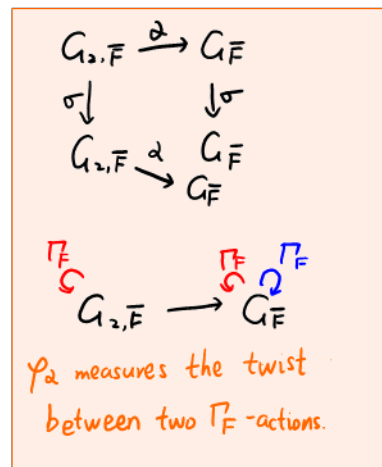 G₂,F̄ →α G F̄
σ↓ ↓σ
G₂,F̄ α G F̄
G F̄
Γ_F Γ_F Γ_F
G₂,F̄ → G F̄
φ₂ measures the twist
between two Γ_F-actions.